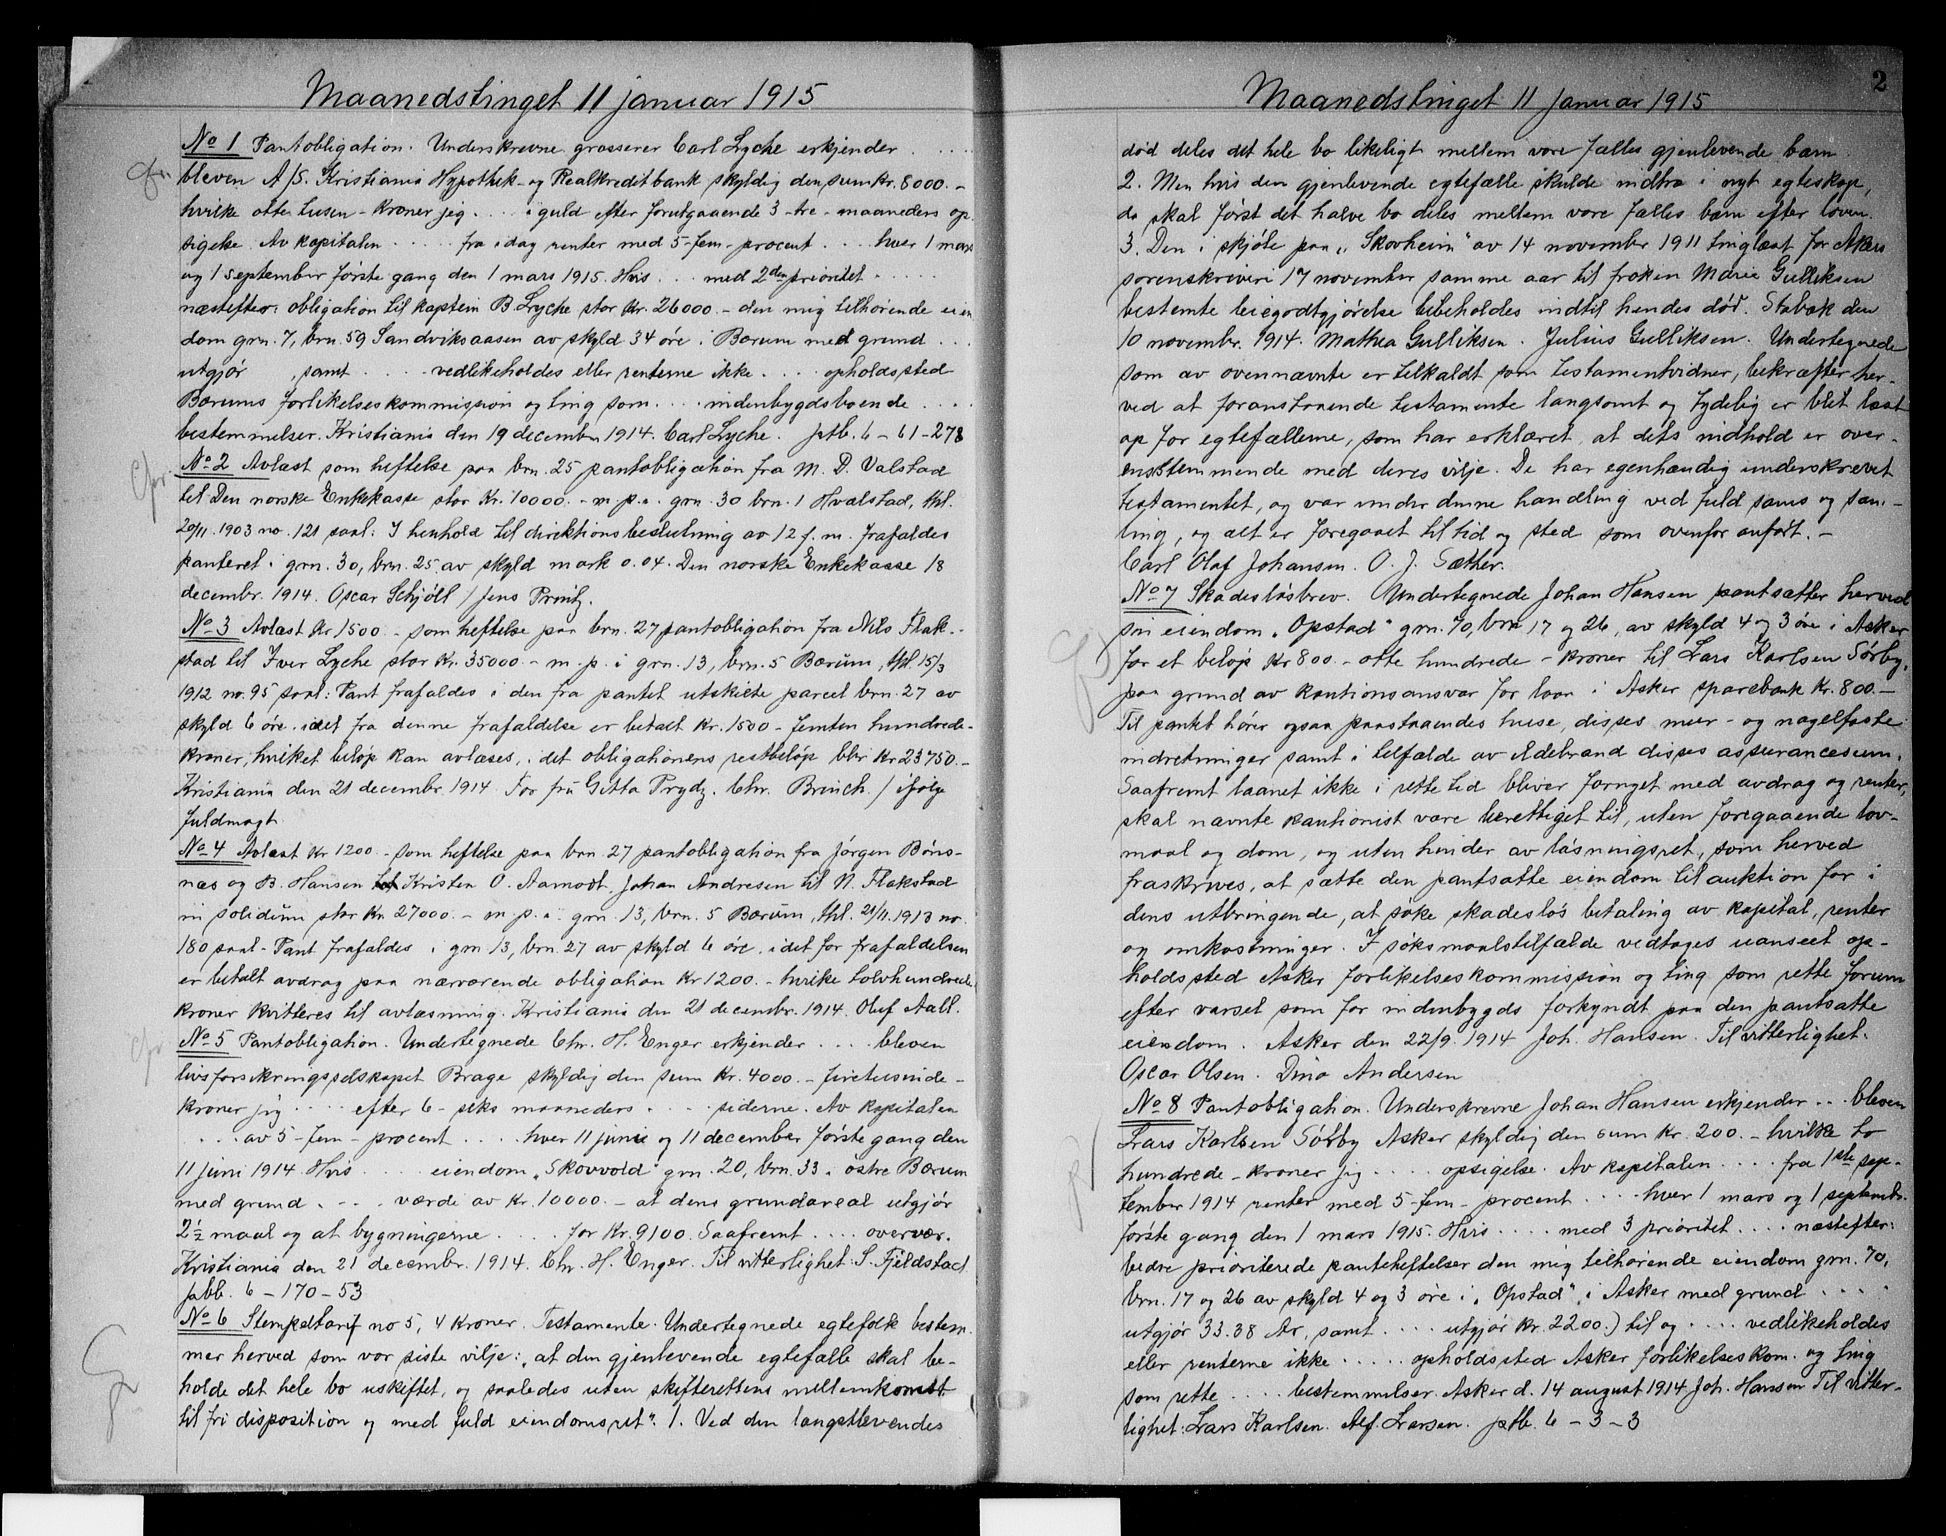 Maanedstinget 11 januar 1915
No 1 Pantobligation. Underskrevne grosserer Carl Lyche erkjender . . . .
bleven A/S. Kristiania Hypothek- og Realkreditbank skyldig den sum Kr. 8000.-
hvilke otte tusen - Kroner jeg . . . i guld efter forutgaaende 3 - tre - maaneders op-
sigelse. Av kapitalen . . . . . fra idag renter med 5-fem-procent . . . hver 1 mars
og 1 september første gang den 1 mars 1915. Hvis . . . med 2den prioritet . . . . .
næstefter: obligation til kaptein B. Lyche stor Kr. 26000.- den mig tilhørende eien
dom grn. 7, brn. 59 Sandviksaasen av skyld 34 øre i Bærum med grund . . .
utgjør , samt . . . . vedlikeholdes eller renterne ikke . . . . opholdssted
Bærums forlikelseskommission og ting som . . . indenbygdsboende . . . .
bestemmelser. Kristiania den 19 decembr 1914. Carl Lyche. ptb. 6 - 61 - 278
No 2 Avlæst som heftelse paa brn. 25 pantobligation fra M. D. Valstad
til Den norske Enkekasse stor Kr. 10000.- m. p. i. grn. 30 brn. 1 Hvalstad, thl.
20/11. 1903 no. 121 saal: I henhold til direktionsbeslutning av 12 f. m. frafaldes
panteret i grn. 30, brn. 25 av skyld mark 0.04. Den norske Enkekasse 18
decembr. 1914. Oscar Schjött / Jens Printz.
No 3 Avlæst Kr 1500.- som heftelse paa brn. 27 pantobligation fra Nils Flak-
stad til Iver Lyche stor Kr. 35000.- m. p. i grn. 13, brn. 5 Bærum, thl 15/3
1912 no. 95 saal: Pant frafaldes i den fra pantet utskilte parcel brn. 27 av
skyld 6 øre. idet fra denne frafaldelse er betalt Kr. 1500 - femten hundrede-
kroner, hvilket beløp kan avlæses, i det obligationens restbeløp blir Kr 23750.-
Kristiania den 21 decembr. 1914. For frü Gitta Prydz. Chr. Brinch. / ifølge
fuldmagt.
No 4 Avlæst Kr 1200.- som heftelse paa brn. 27 pantobligation fra Jørgen Bøns-
næs og B. Hansen Kristen O. Aamodt, Johan Andresen til N. Flakstad
in solidum stor Kr. 27000.- m. p. i. grn. 13, brn. 5 Bærum, thl. 21/11. 1913 no.
180 saal- Pant frafaldes i grn 13, brn. 27 av skyld 6 øre. idet for frafaldelsen
er betalt avdrag paa nærværende obligation Kr 1200.- hvilke tolvhundrede
kroner kvitteres til avlæsning. Kristiania den 21 decembr. 1914. Oluf Aall.
No 5 Pantobligation. Undertegnede Chr. H. Enger erkjender . . . . bleven
livsforsikringsselskapet Brage skyldig den sum Kr. 4000.- firetusinde-
kroner jeg . . . . efter 6 - seks maaneders . . . . siderne. Av kapitalen
. . . . av 5 - fem - procent . . . . hver 11 juni og 11 december første gang den
11 juni 1914. Hvis . . . . eiendom „Skovvold" grn. 20, brn. 33 i østre Bærum
med grund . . . værde av Kr. 10000.- at dens grundareal utgjør
2½ maal og at bygningerne . . . . for Kr. 9100. Saafremt . . . . overvær.
Kristiania den 21 decembr. 1914. Chr. H. Enger. Til vitterlighet: S. Fjeldstad
ptb. 6 - 170 - 53
No 6 Stempeltarif no 5, 4 kroner. Testamente. Undertegnede egtefolk bestem-
mer herved som vor siste vilje: „at den gjenlevende egtefælle skal be-
holde det hele bo uskiftet, og saaledes uten skifterettens mellemkomst
til fri disposition og med fuld eiendomsret". 1. Ved den længstlevendes
Maanedstinget 11 januar 1915
2
død deles det hele bo likeligt mellem vore fælles gjenlevende bærn
2. Men hvis den gjenlevende egtefælle skulde indtræ i nyt egteskap,
da skal først det halve bo deles mellem vore fælles barn efter loven.
3. Den i skjøte paa „Skovheim" av 14 november 1911 tinglæst for Akers
sorenskriveri 17 november samme aar til frøken Marie Gulliksen
bestemte leiegodtgjørelse bibeholdes indtil hendes død. Stabæk den
10 novembr. 1914. Mathea Gulliksen. Julius Gulliksen. Undertegnede
som av ovennævnte er tilkaldt som testamentvidner, bekræfter her-
ved at foranstaaende testamente langsomt og tydelig er blit læst
op for egtefællerne, som har erklæret, at dets indhold er over-
ensstemmende med deres vilje. De har egenhændig underskrevet
testamentet, og var under denne handling ved fuld sans og sam-
ling, og alt er foregaaet til tid og sted som ovenfor anført. -
Carl Olaf Johansen. O. J. Sæther.
No 7 Skadesløsbrev. Undertegnede Johan Hansen pantsætter herved
sin eiendom „Opstad" grn. 70, brn 17 og 26, av skyld 4 og 3 øre i Asker
for et beløp Kr 800.- otte hundrede - kroner til Lars Karlsen Sørby,
paa grund av kautionsansvar for laan i Asker sparebank Kr. 800.-
Til pantet hører ogsaa paastaaendes huse, disses mur- og nagelfaste
indretninger samt i tilfælde av ildebrand disses assurancesum.
Saafremt laanet ikke i rette tid bliver fornyet med avdrag og renter,
skal nævnte kautionist være berettiget til, uten foregaaende lov-
maal og dom, og uten hinder av løsningsret, som herved
fraskrives, at sætte den pantsatte eiendom til auktion for i
dens utbringende, at søke skadesløs betaling av kapital, renter
og omkostninger. I søksmaalstilfælde vedtages uanseet op-
holdssted Asker forlikelseskommission og ting som rette forum
efter varsel som for indenbygds forkyndt paa den pantsatte
eiendom. Asker den 22/9. 1914 Joh. Hansen. Til vitterlighet.
Oscar Olsen. Dina Andersen
No 8 Pantobligation. Underskrevne Johan Hansen erkjender . . . bleven
Lars Karlsen Sørby Asker skyldig den sum Kr. 200.- hvilke to
hundrede - kroner jeg . . . . opsigelse. Av kapitalen . . . . fra 1ste sep-
tember 1914 renter med 5-fem-procent . . . . hver 1 mars og 1 septembr.
første gang den 1 mars 1915. Hvis . . . . med 3 prioritet . . . . næstefter:
bedre prioriterede panteheftelser den mig tilhørende eiendom grn. 70,
brn. 17 og 26 av skyld 4 og 3 øre i „Opstad", i Asker med grund . . . .
utgjør 33.38 Ar, samt . . . utgjør Kr. 2200.) til og . . . . vedlikeholdes
eller renterne ikke . . . . . opholdssted Asker forlikelseskom. og ting
som rette . . . . bestemmelser. Asker d. 14 august 1914 Joh. Hansen Til vitter-
lighet: Lars Karlsen. Alf. Larsen. ptb. 6 - 3 - 3